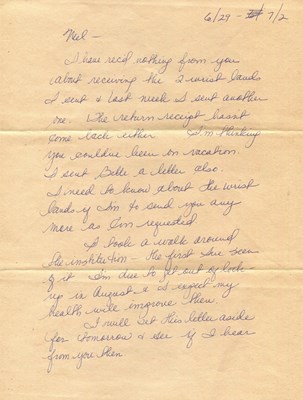 6/29 - 7/2
Neil -
I have rec'd nothing from you
about receiving the 2 wrist bands
I sent & last week I sent another
one. The return receipt hasn't
come back either. I'm thinking
you could've been on vacation.
I sent Belle a letter also.
I need to know about the wrist
bands if I'm to send you any
more as I'm requested
I took a walk around
the institution - the first I've seen
of it I'm due to get out of lock
up in August & expect my
health will improve then.
I will set this letter aside
for tomorrow & see if I hear
from you then